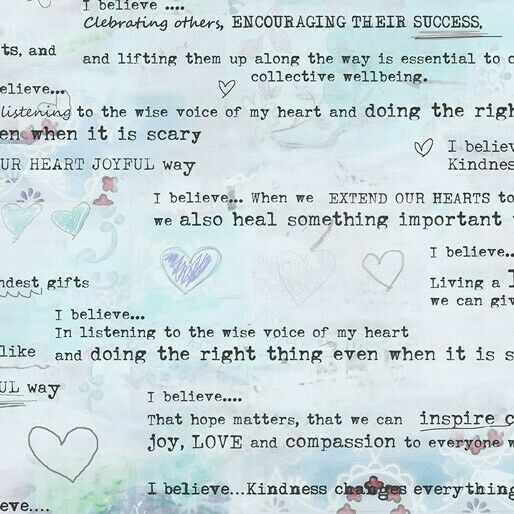 I believe ....
Clebrating others, ENCOURAGING THEIR SUCCESS,
ts, and
and lifting them up along the way is essential to
collective wellbeing.
elieve...
listening to the wise voice of my heart and doing the righ
en when it is scary
I believ
UR HEART JOYFUL way
Kindness
I believe... When we EXTEND OUR HEARTS to
we also heal something important
I believe..
ndest gifts
Living a
we can giv
I believe...
In listening to the wise voice of my heart
like
and doing the right thing even when it is s
UL way
I believe....
That hope matters, that we can inspire c
joy, LOVE and compassion to everyone w
I believe...Kindness changes everything
eve....